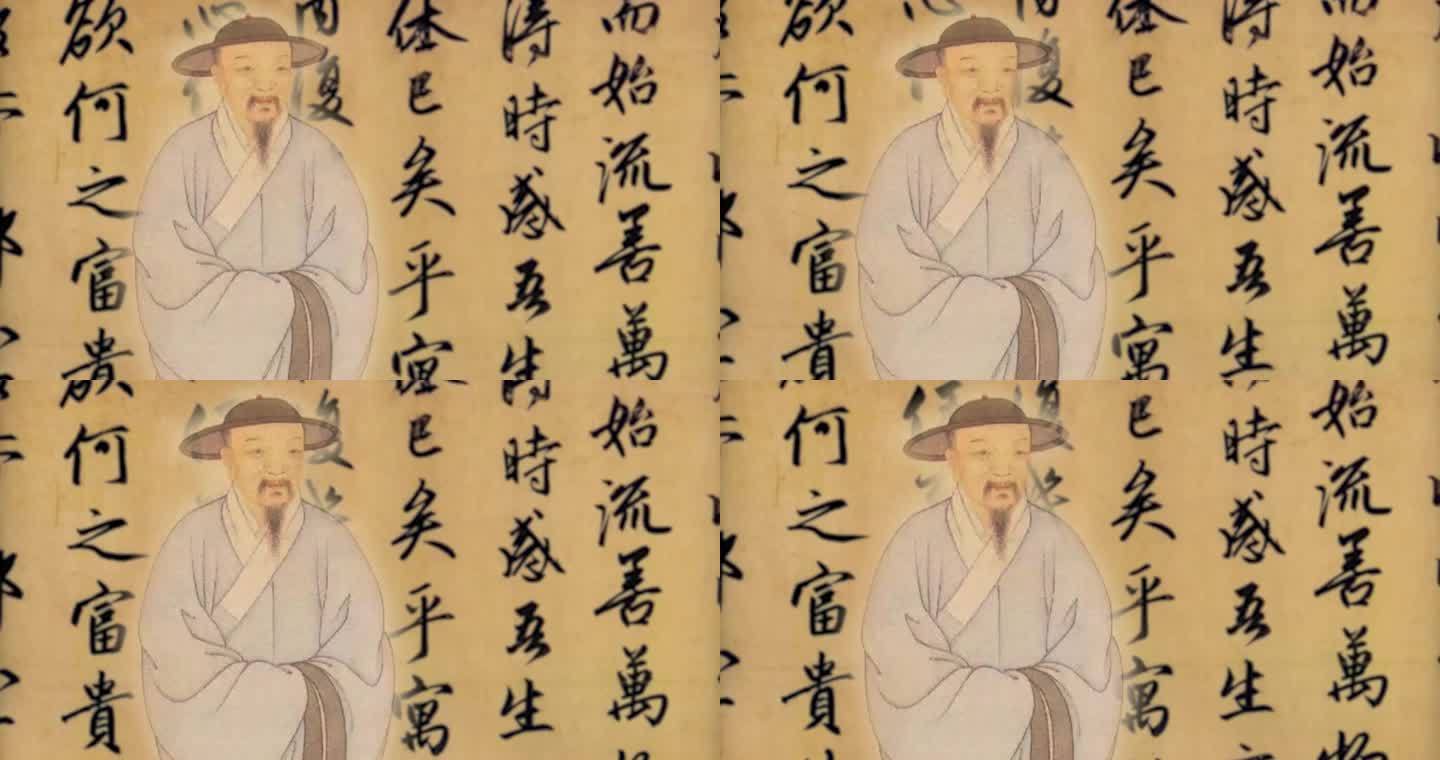 而始流善萬
得時感吾生
休已矣乎寓
內復
欲何之富貴
而始流善萬
得時感吾生
休已矣乎寓
內復
心
欲何之富貴
始流善萬
得時感吾生
已矣乎寓
復
欲何之富貴
始流善萬物
得時感吾生
已矣乎寓
復
欲何之富貴